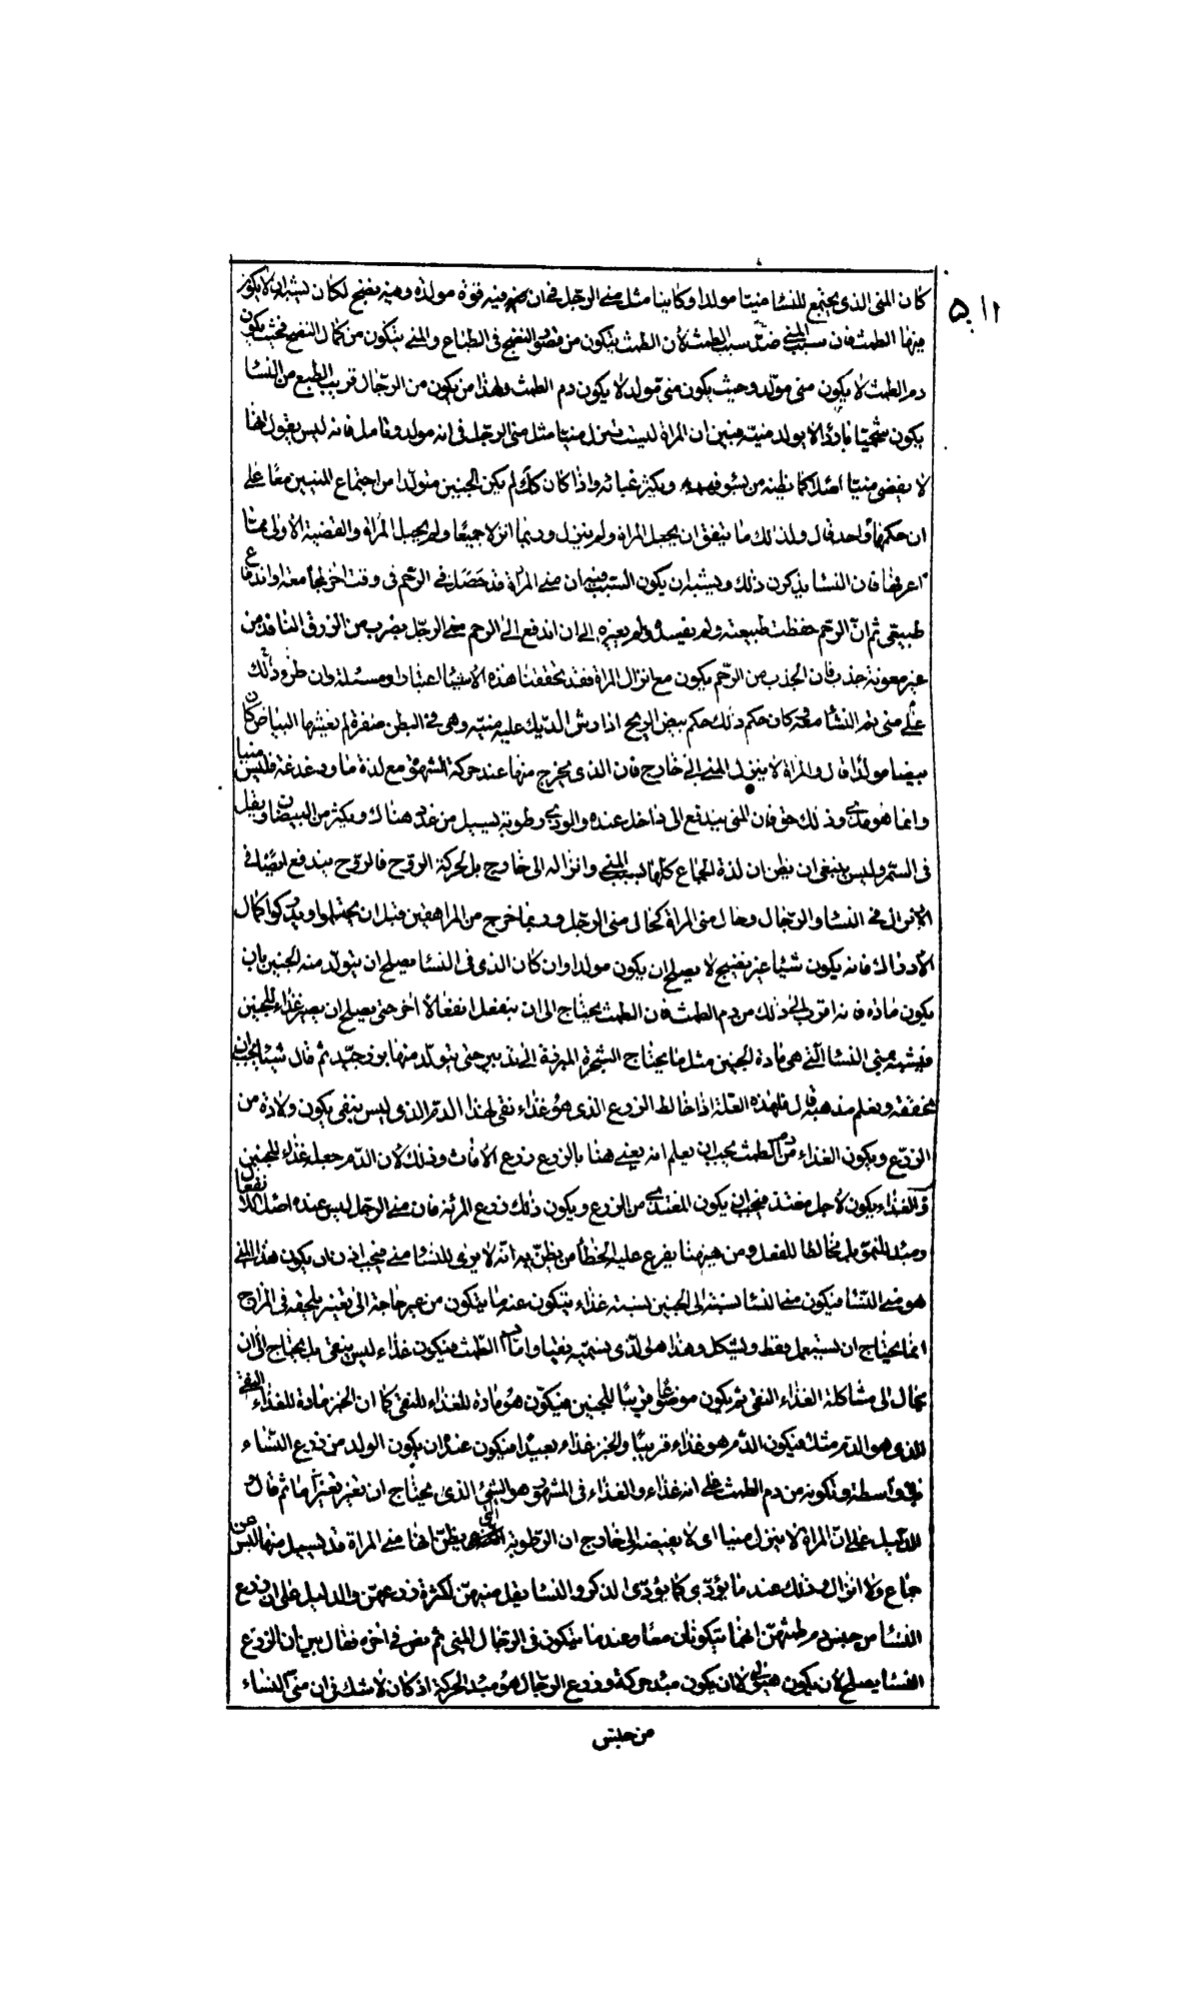 ۵۰۱۱
كان المنى الذى يجتمع للنسا منيا مولدا وكاينا مثل منى الرجل فى ان فيه قوة مولدة وفيه نضج لكان يشبه ان لا يكون
فيها الطمث فان سبب المنى ضد سبب الطمث لأن الطمث يتكون من نقص النضج فى الطباع والمنى يتكون من كمال النضج فحيث يكون
دم الطمث لا يكون منى مولد وحيث يكون منى مولد لا يكون دم الطمث ولهذا من يكون من الرجال قريب الطبع من النسا
يكون شحميا باردا لا يولد منيه فبين ان المراة ليست تنزل منيا مثل منى الرجل فى انه مولد وفاعل فانه ليس يقول انها
لا يفضى منيا اصلا كما ظنه من يسو فهمه ويكثر غباثه واذا كان كك لم يكن الجنين متولدا من اجتماع المنيين معا على
ان حكمهما واحد قال ولذلك ما يتفق ان يحبل المراة ولم ينزل وربما انزلا جميعا ولم يحبل المراة والقضية الاولى مما
اعرفها فان النسا يذكرن ذلك ويشبه ان يكون السبب فيه ان منى المراة قد حصل فى الرحم فى وقت اخر لمجامعة او اندفاع
طبيعى ثم ان الرحم حفظت طبيعته ولم يفسده ولم يغيره الى ان اندفع الى الرحم منى الرجل بضرب من الزرق النافذ من
غير معونة جذب فان الجذب من الرحم يكون مع انزال المراة فقد تحققنا هذه الاشيا اعتبارا ومسئلة وان طرو ذلك
على منى النسا كان حكم ذلك حكم بيض الريح اذا ورش الديك عليه منيه وهى فى البطن صفرة لم يغشها البياض كان
بيضا مولدا قال والمراة لا ينزل المنى الى خارج فان الذى يخرج منها عند حركة الشهوة مع لذة ما ودغدغة فليس منيا
وانما هو مذى وذلك حق فان المنى يندفع الى داخل عنده والودى رطوبة تسيل من غدد هناك ويكثر من البيضان ويقل
فى السمر وليس ينبغى ان يظن ان لذة الجماع كلها بسبب المنى وانزاله الى خارج بل لحركة الروح فالروح يندفع ايضا فى
الانزال فى النسا والرجال وحال منى المراة كحال منى الرجل وربما خرج من المراهقين قبل ان يحتلموا ويدركوا كمال
الادراك فانه يكون شيئا غير نضيج لا يصلح ان يكون مولدا وان كان الذى فى النسا يصلح ان يتولد منه الجنين بان
يكون مادة فانه اقرب الى ذلك من دم الطمث فان الطمث يحتاج الى ان ينفعل انفعالا اخر حتى يصلح ان يصير غذاء للجنين
فيشبه منى النسا التى هى مادة الجنين مثل ما يحتاج الشجرة المرضة الى تدبير حتى يتولد منها بزر جيد ثم قال شيئا يجب ان
نحققه ونعلم مذهبه قال فلهذه العلة اذا خالط الزرع الذى هو غذاء نقى لهذا الدم الذى ليس بنقى يكون ولادة من
الزرع ويكون الغذاء من دم الطمث يجب ان يعلم انه يعنى هنا بالزرع زرع الاناث وذلك لان الدم جعله غذاء للجنين
والغذاء يكون لاجل مغتذ فيجب ان يكون المغتذى من الزرع ويكون ذلك زرع المرئة فان منى الرجل ليس عنده اصلا للانفعال
ومبدا للنمو بل مخالطا للفعل ومن هيهنا يفرع عليه الخطأ من يظن به انه لا يرى للنسا منى فيجب اذن ان يكون هذا المنى
هو منى النسا فيكون منى النسا نسبته الى الجنين نسبة غذاء يتكون عنه ما يتكون من غير حاجة الى تغير يلحقه فى المزاج
انما يحتاج ان يستعمل فقط ويشكل وهذا هو الذى يسميه نقيا واما دم الطمث فيكون غذاء ليس بنقى بل يحتاج الى ان
يحال الى مشاكلة الغذاء النقى ثم يكون موضوعا قريبا للجنين فيكون هو مادة للغذاء النقى كما ان الخبز مادة للغذاء النقى
الذى هو الدم مثلا فيكون الدم هو غذاء قريبا والخبز غذاء بعيدا فيكون عنده ان يكون الولد من زرع النساء
بلا واسطة وتكونه من دم الطمث على انه غذاء والغذاء فى المشهور هو الشىء الذى يحتاج ان يغير تغيرا ما ثم قال
الدليل على ان المراة لا ينزل منيا اى لا يفيضه الى خارج ان الرطوبة التى يظن انها منى المراة قد يسيل منها ليس عن
جماع ولا انزال وذلك عند ما يؤدى كما يؤدى الذكر والنسا يقل منهن لكثرة زرعهن والدليل على ان زرع
النسا من جنس دم طمثهن انهما يتكونان معا وعند ما يتكون فى الرجال المنى ثم نص فى اخره فقال بين ان الزرع
النسا يصلح لان يكون هيولى لا ان يكون مبدء حركة وزرع الرجال هو مبدء الحركة اذ كان لا شك فى ان منى النساء
من جنس